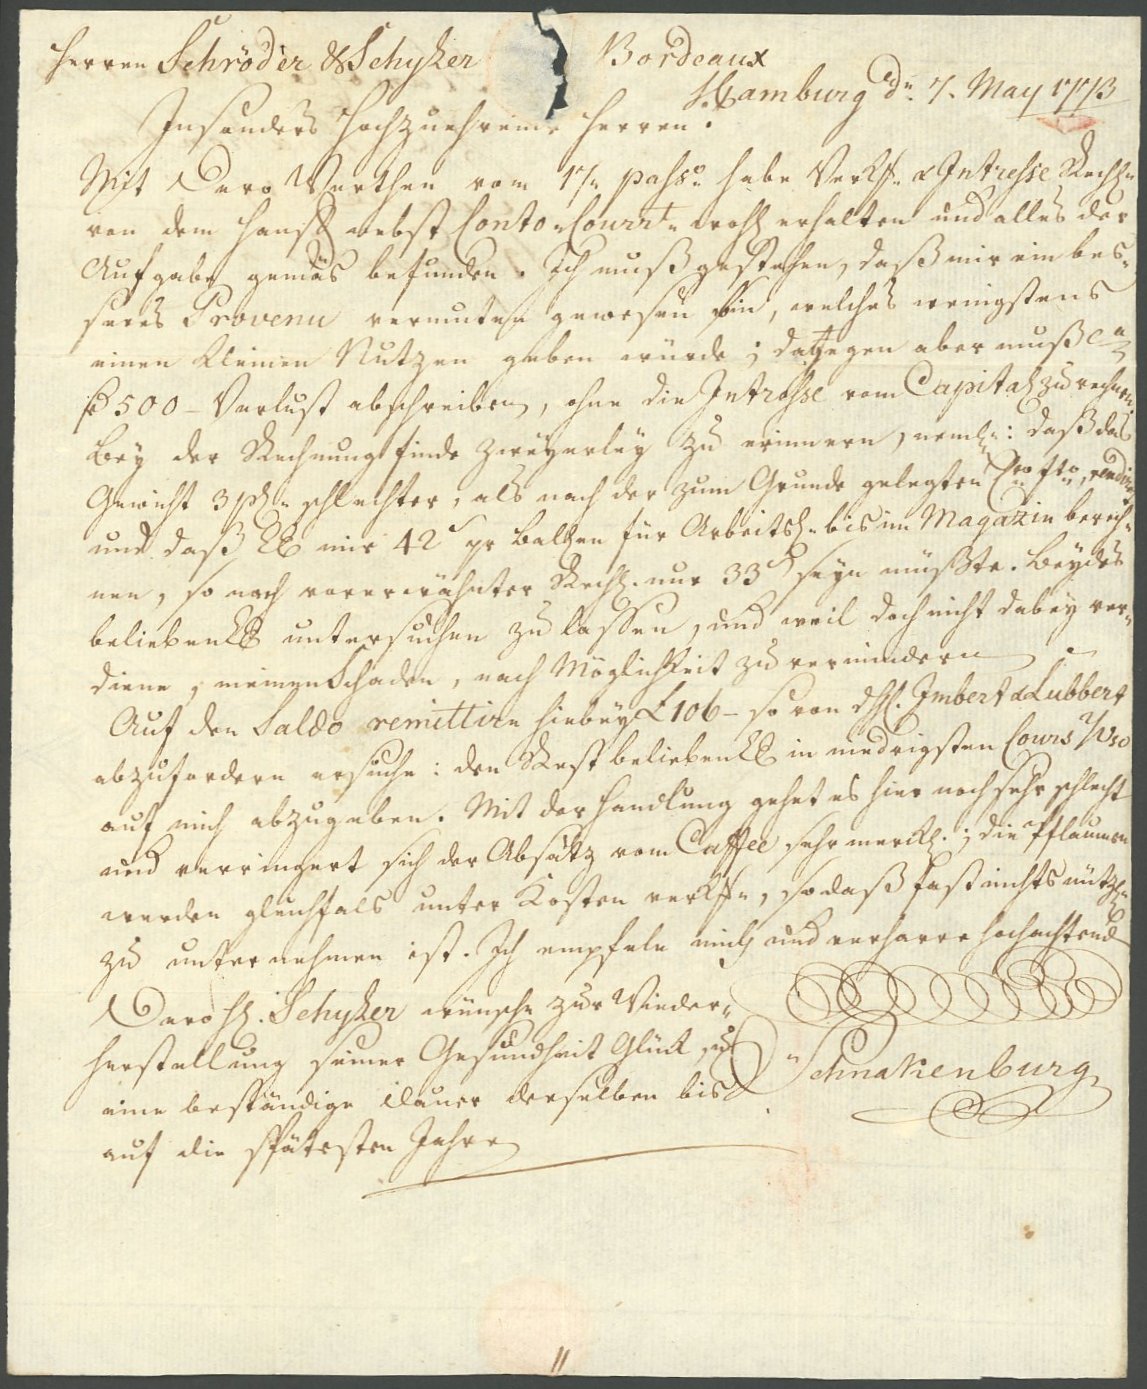 Herren Schröder & Schyler Bordeaux
Hamburg dn. 7. May 1773
Insonders Hochzuehrende Herren.
Mit Dero Werthen vom 17n passo. habe Verkfs. & Intresse Rechn.
von dem Hanf nebst Conto Courrt. wohl erhalten und alles der
Aufgabe gemäs befunden. Ich muß gestehen, daß mir ein bes-
seres Provenu vermuten gewesen bin, welches wenigstens
einen kleinen Nutzen geben würde; dagegen aber muß
500 - Verlust abschreiben, ohne die Intresse vom Capital zu rechnen.
Bey der Rechnung finde zweyerley zu erinnern, neml: daß das
Gewicht 3 schlechter, als nach der zum Grunde gelegten rendirt
und daß mir 42 pr Ballen für Arbeitsl. bis im Magazin berech-
nen, so nach vorerwähnter Rech. nur 33 seyn müßte. Beydes
belieben untersuchen zu lassen, und weil doch nicht dabey ver-
diene, meinen Schaden, nach Möglichkeit zu vermindern
Auf den Saldo remittire hiebey £ 106 - so von Imbert & Lubbert
abzufordern ersuche: den Rest belieben in niedrigsten Cours Uso
auf mich abzugeben. Mit der Handlung gehet es hier noch sehr schlecht
und verringert sich der Absatz vom Caffee sehr merkl.; die Pflaumen
werden gleichfals unter Kosten verkft., so daß fast nichts nützl.
zu unternehmen ist. Ich empfele mich und verharre hochachtend
Dero H. Schyler wünsche zur Wieder-
herstellung seiner Gesundheit Glück, u
eine beständige Dauer derselben bis
auf die spätesten Jahre
Schnakenburg